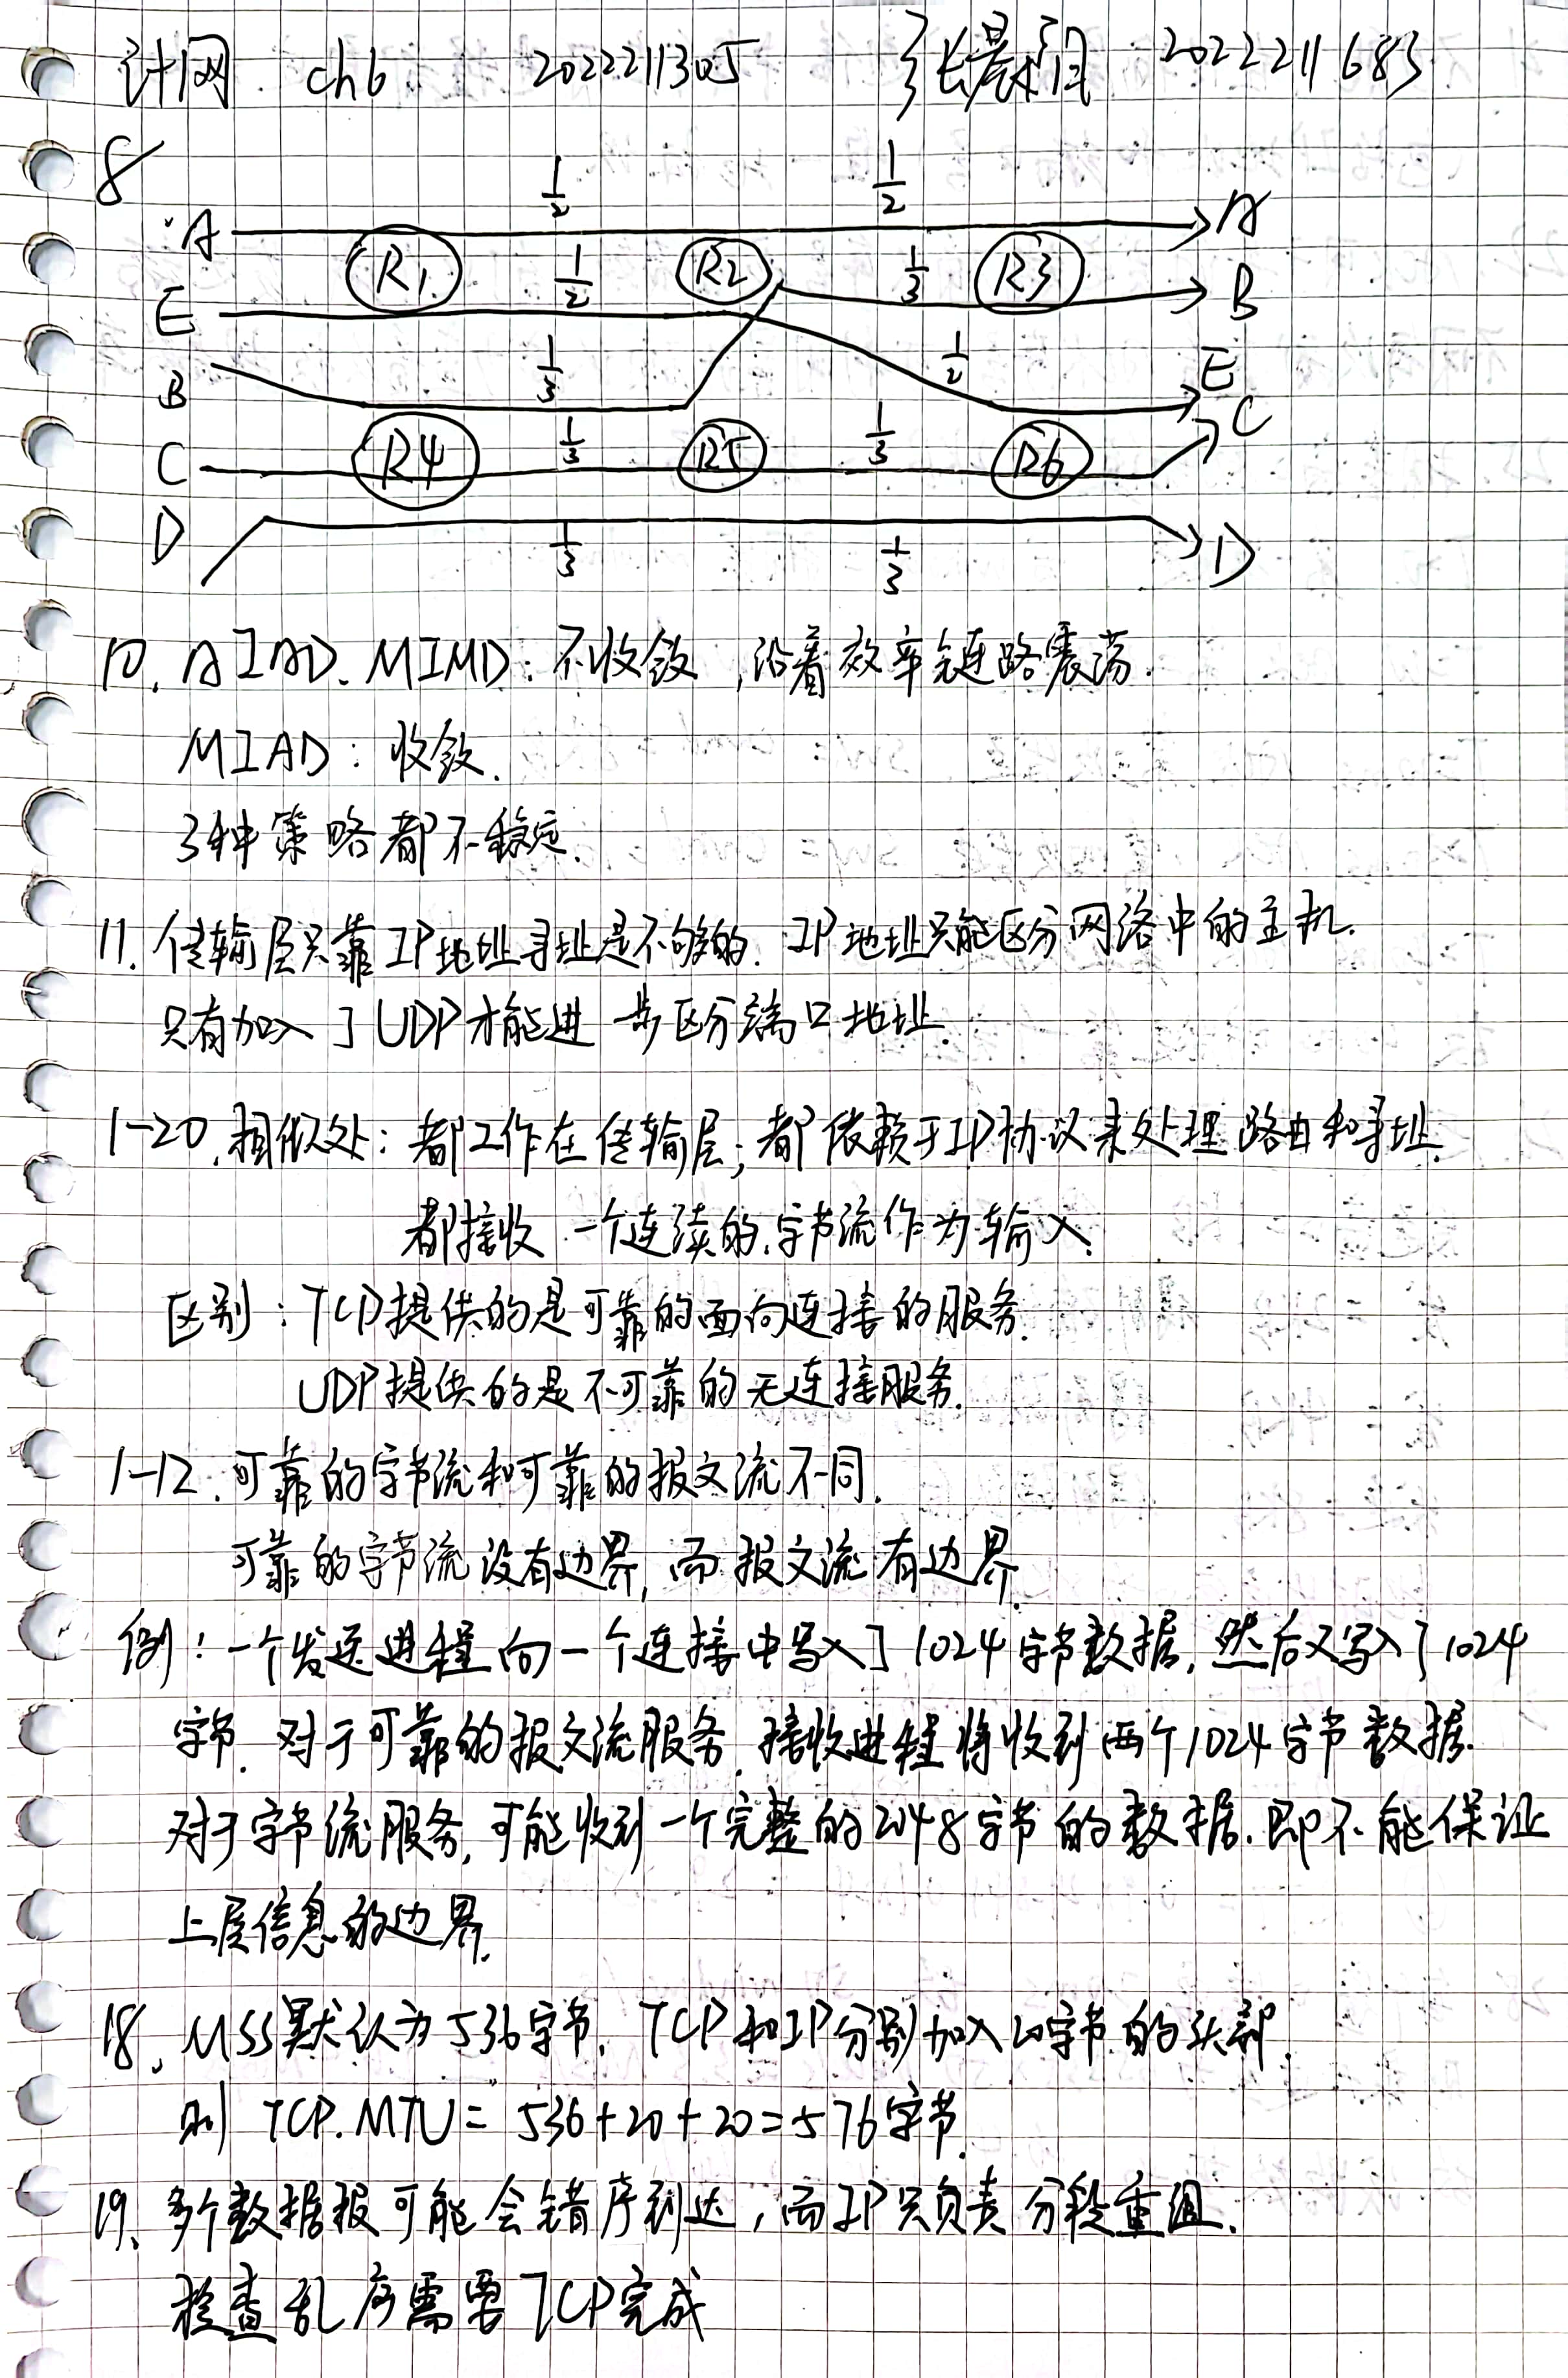 计网 ch6 2022211305 张晨 2022211683
8
1/2 1/2
A A
R1 1/2 R2 1/3 R3
E B
1/3 1/2 E
B C
R4 1/3 R5 1/3 R6
C
D 1/3 1/3 D
10. AIAD、MIMD：不收敛，沿着效率链路震荡.
MIAD：收敛.
3种策略都不稳定.
11. 传输层只靠IP地址寻址是不够的. IP地址只能区分网络中的主机.
只有加入了UDP才能进一步区分端口地址.
1-20. 相似处：都工作在传输层；都依赖于IP协议来处理路由和寻址.
都接收一个连续的字节流作为输入.
区别：TCP提供的是可靠的面向连接的服务.
UDP提供的是不可靠的无连接服务.
1-12. 可靠的字节流和可靠的报文流不同.
可靠的字节流没有边界，而报文流有边界.
例：一个发送进程向一个连接中写入了1024字节数据，然后又写入了1024
字节. 对于可靠的报文流服务，接收进程将收到两个1024字节数据.
对于字节流服务，可能收到一个完整的2048字节的数据. 即不能保证
上层信息的边界.
18. MSS默认为536字节，TCP和IP分别加入20字节的头部.
则 TCP.MTU = 536+20+20=576字节.
19. 多个数据报可能会错序到达，而IP只负责分段重组.
检查乱序需要TCP完成